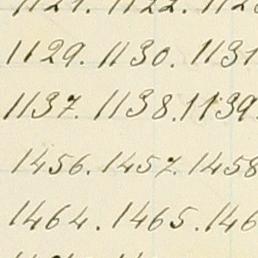 1121. 1122. 112
1129. 1130. 1131
1137. 1138. 1139.
1456. 1457. 1458
1464. 1465. 146